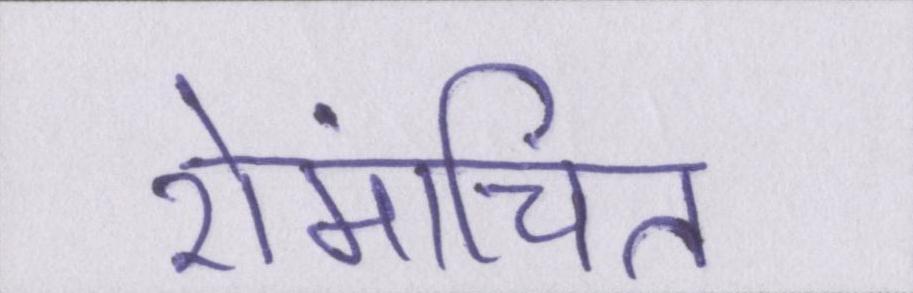 रोमांचित